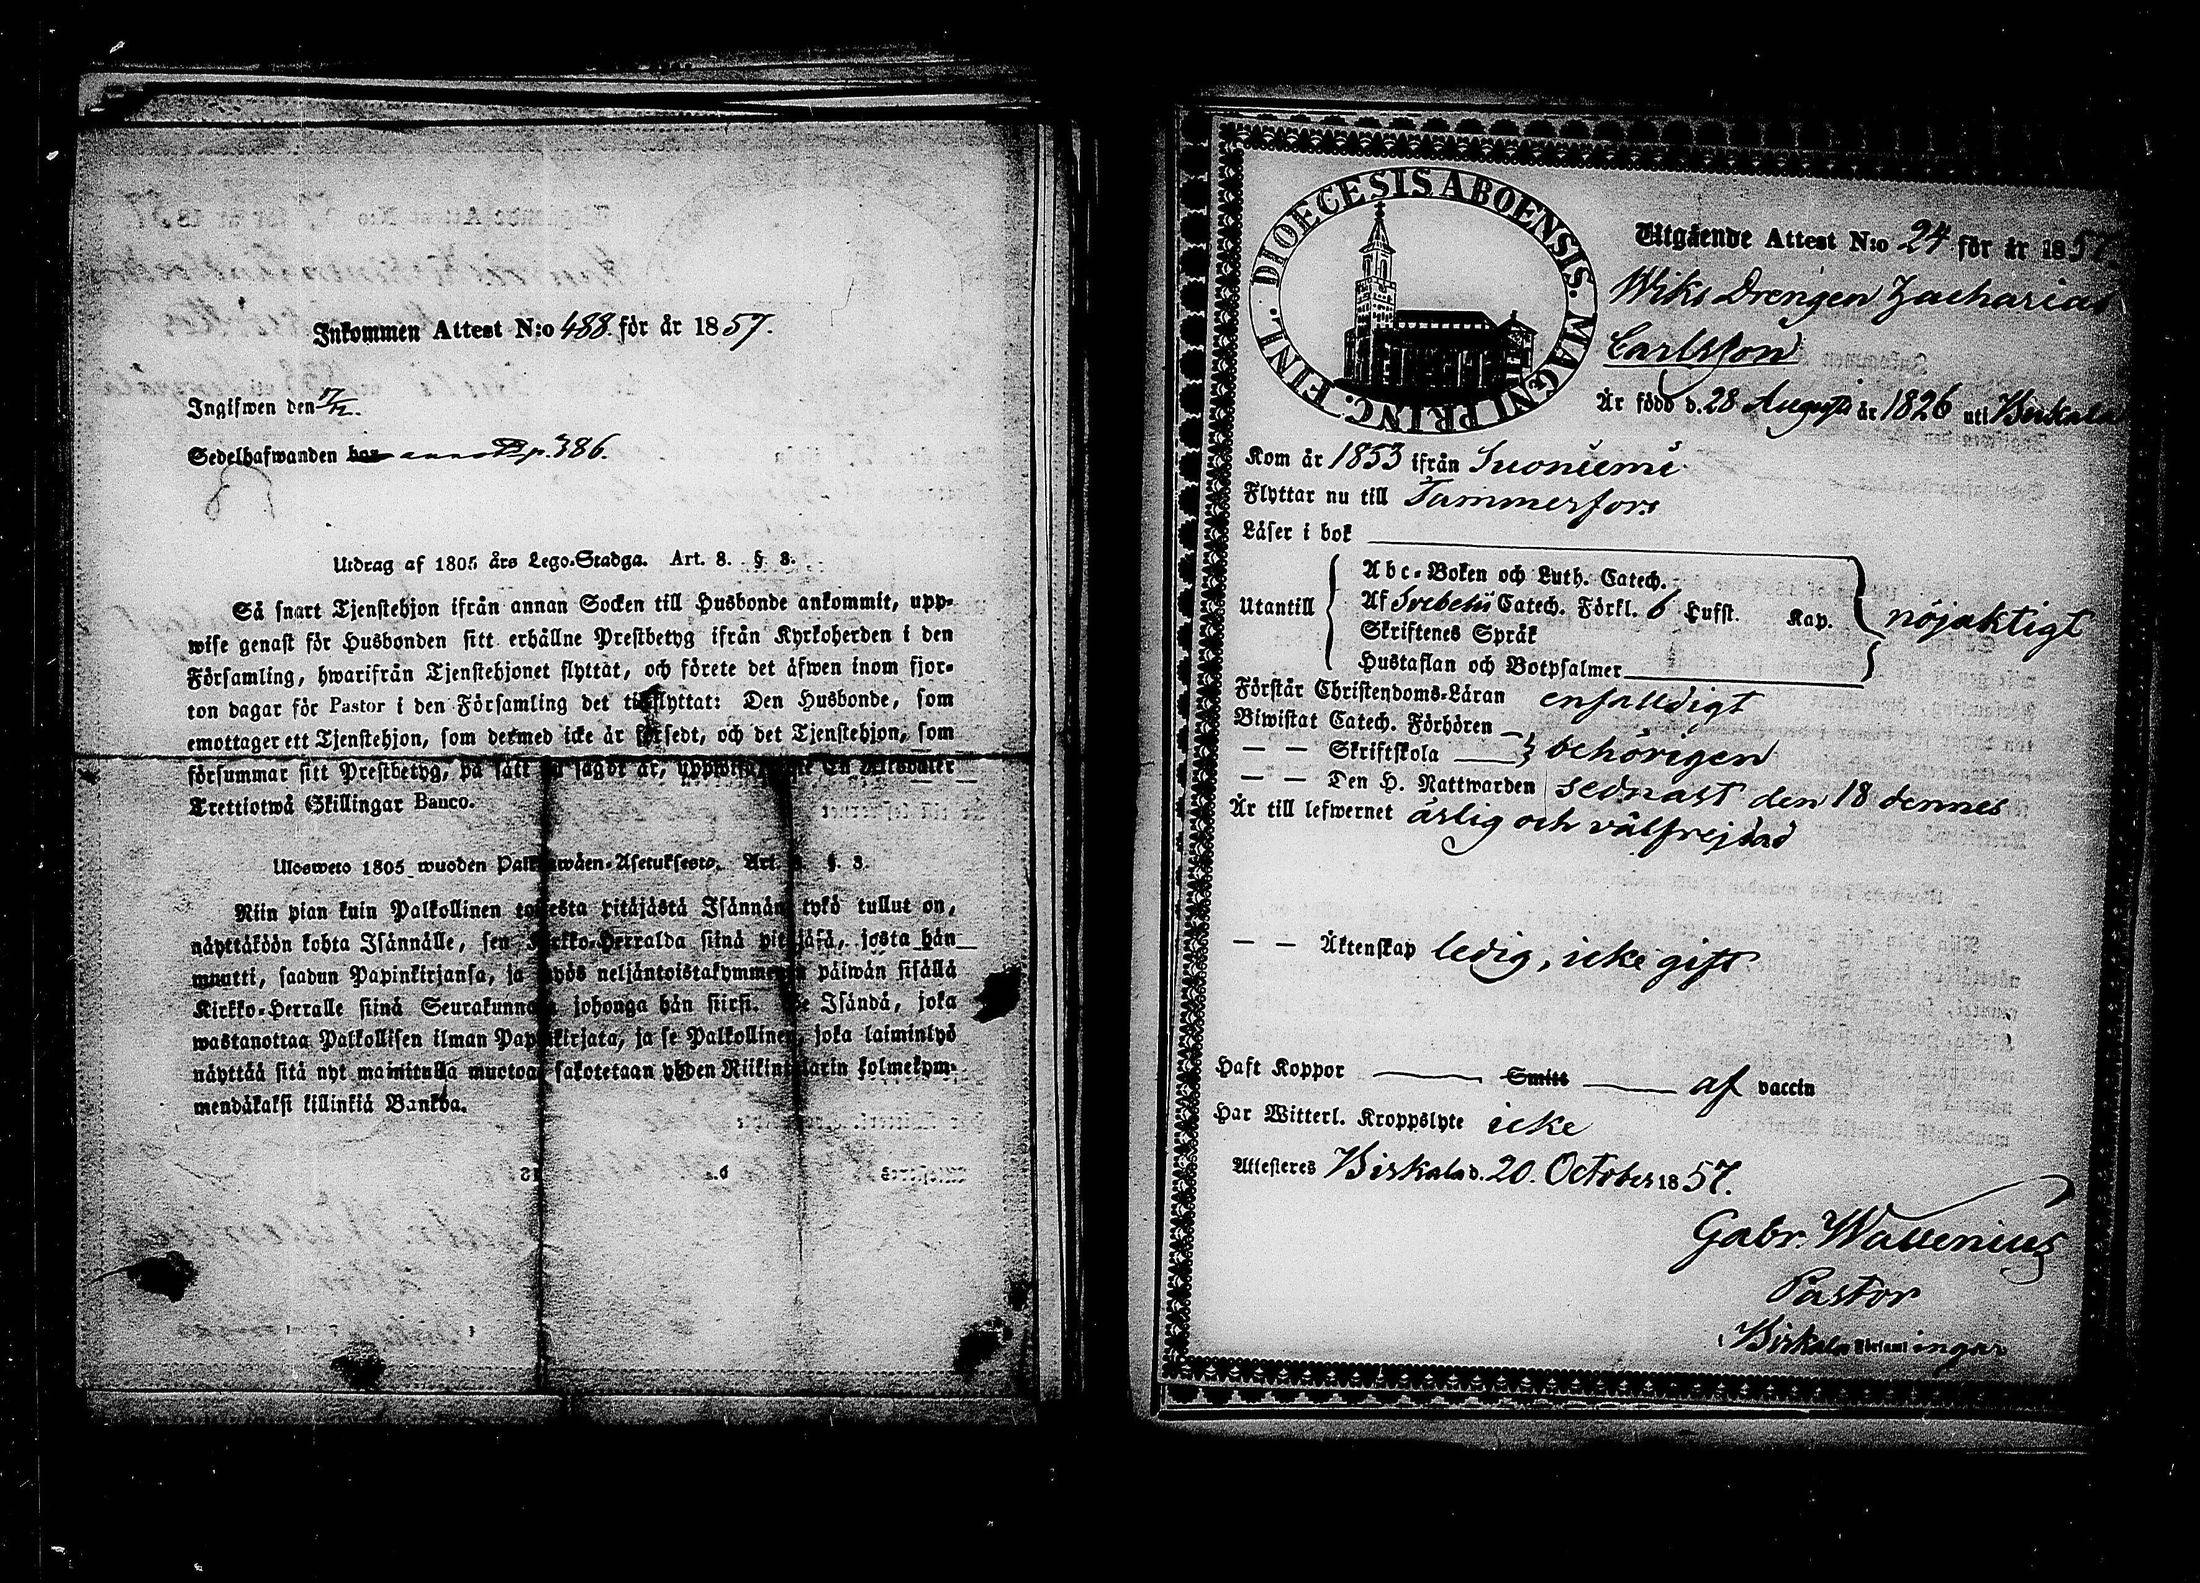 Inkommen Attest N:o 488. för år 1857.
Ingifwen den 17/12.
Sedelhafwanden p. 386.
Utdrag af 1805 års Lego-Stadga. Art. 8. § 3.
Så snart Tjenstehjon ifrån annan Socken till Husbonde ankommit, upp-
wise genast för Husbonden sitt erhållne Prestbetyg ifrån Kyrkoherden i den
Församling, hwarifrån Tjenstehjonet flyttat, och förete det äfwen inom fjor-
ton dagar för Pastor i den Församling det tillflyttat: Den Husbonde, som
emottager ett Tjenstehjon, som dermed icke är försedt, och det Tjenstehjon, som
försummar sitt Prestbetyg, på sätt nu sagdt är,
Trettiotwå Skillingar Banco.
Ulosweto 1805 wuoden Palkkawäen-Asetuksesta. Art. § 3.
Niin pian kuin Palkollinen toisesta pitäjästä Isännän tykö tullut on,
näyttäköön kohta Isännälle, sen Kirkko-Herralda siinä pitäjäsä, josta hän
muutti, saadun Papinkirjansa, ja myös neljäntoistakymmenen päiwän sisällä
Kirkko-Herralle siinä Seurakunnasa johonga hän siirsi. Se Isändä, joka
wastanottaa Palkollisen ilman Papinkirjata, ja se Palkollinen, joka laiminlyö
näyttää sitä nyt mainitulla muotoa, sakotetaan yhden Riikintalarin kolmekym-
mendäkaksi killinkiä Bankoa.
DIOECESIS ABOENSIS. MAGNI PRINC. FINL.
Utgående Attest N:o 24 för år 1857.
Wiks Drengen Zacharias
Carlsson
Är född d. 28 Augusti år 1826 uti Birkala
Kom år 1853 ifrån Suoniemi
Flyttar nu till Tammerfors
Läser i bok
Utantill
Abc-Boken och Luth. Catech.
Af Svebelii Catech. Förkl. 6 Lufst. Kap.
Skriftenes Språk
Hustaflan och Botpsalmer
nöjaktigt
Förstår Christendoms-Läran enfalldigt
Biwistat Catech. Förhören
— — Skriftskola behörigen
— — Den H. Nattwarden sednast den 18 dennes
Är till lefwernet ärlig och välfrejdad
— — Äktenskap ledig, icke gift
Haft Koppor Smitt af vaccin
Har Witterl. Kroppslyte icke
Attesteres Birkala d. 20. October 1857.
Gabr. Wallenius
Pastor
Birkala Församlingar